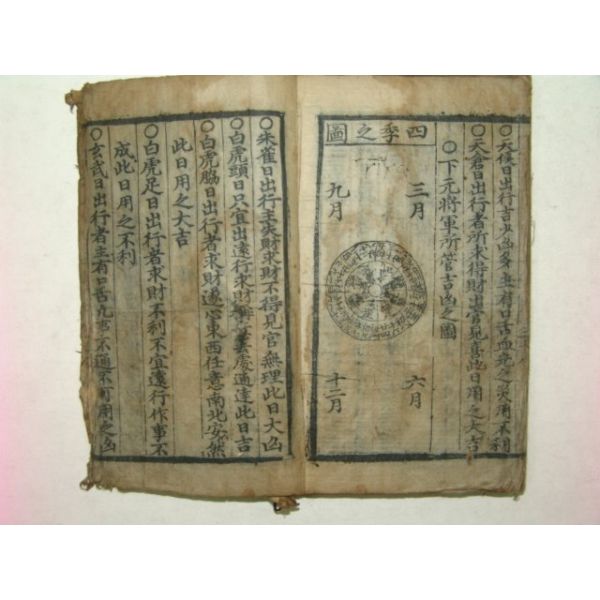 ○天侯日出行吉少凶多主有口舌血光之災用不利
○天倉日出行者所求得財出官見喜此日用之大吉
○下元將軍所管吉凶之圖
四季之圖
三月
六月
九月
十二月
○朱雀日出行主失財求財不得見官無理此日大凶
○白虎頭日只宜出遠行求財處通達此日吉
○白虎脇日出行者求財遂心東西任意南北安然
此日用之大吉
○白虎足日出行者求財不利不宜遠行作事不
成此日用之不利
○玄武日出行者主有口舌凡事不通不可用之凶